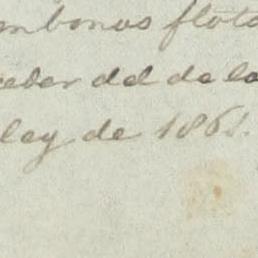 mbonos flota
eder del de la
ley de 1861.